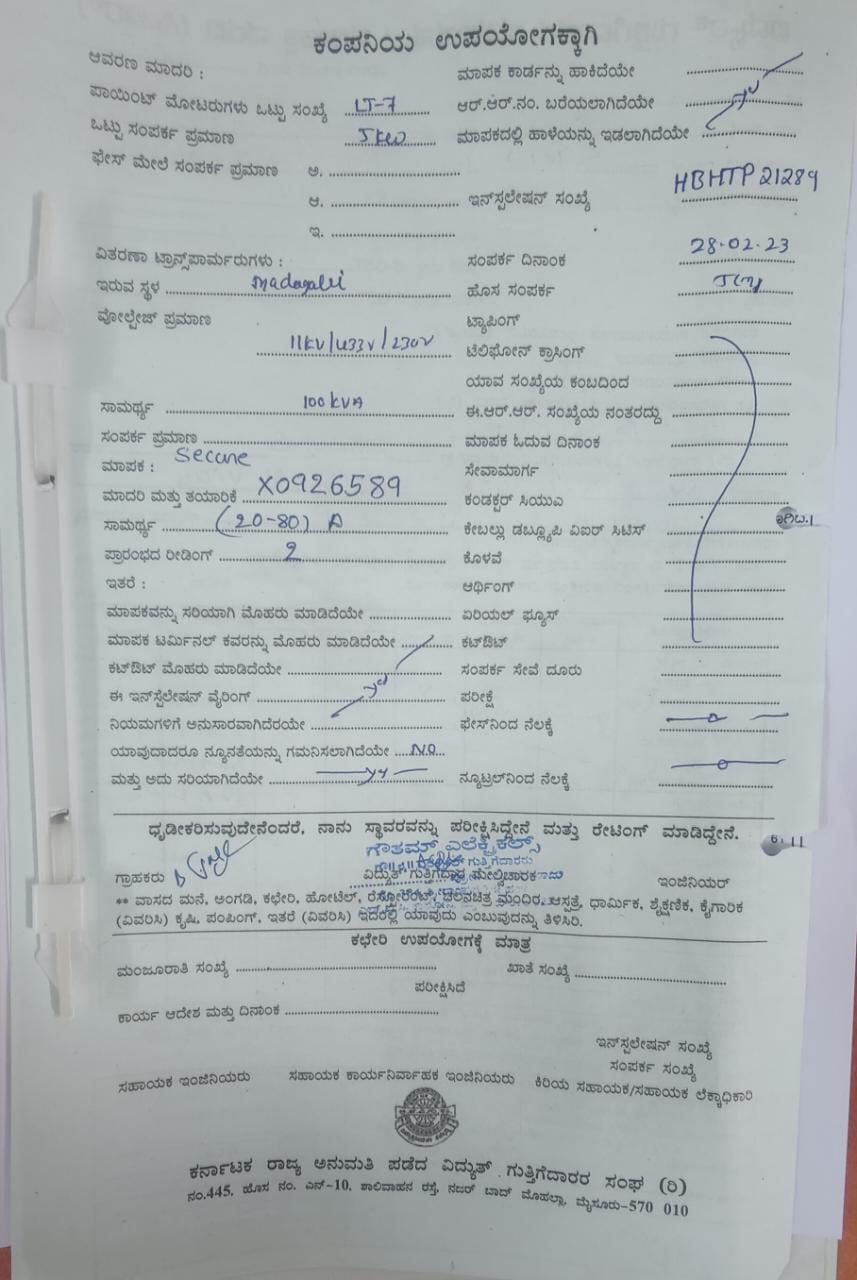 ಕಂಪನಿಯ ಉಪಯೋಗಕ್ಕಾಗಿ
ಆವರಣ ಮಾದರಿ : ಮಾಪಕ ಕಾರ್ಡನ್ನು ಹಾಕಿದೆಯೇ
ಪಾಯಿಂಟ್ ಮೋಟರುಗಳು ಒಟ್ಟು ಸಂಖ್ಯೆ LT-7 ಆರ್.ಆರ್.ನಂ. ಬರೆಯಲಾಗಿದೆಯೇ
ಒಟ್ಟು ಸಂಪರ್ಕ ಪ್ರಮಾಣ ಮಾಪಕದಲ್ಲಿ ಹಾಳೆಯನ್ನು ಇಡಲಾಗಿದೆಯೇ
ಫೇಸ್ ಮೇಲೆ ಸಂಪರ್ಕ ಪ್ರಮಾಣ ಅ.
ಆ. ಇನ್‌ಸ್ಟಲೇಷನ್ ಸಂಖ್ಯೆ HBHTP 21289
ಇ.
ವಿತರಣಾ ಟ್ರಾನ್ಸ್‌ಪಾರ್ಮರುಗಳು : ಸಂಪರ್ಕ ದಿನಾಂಕ 28.02.23
ಇರುವ ಸ್ಥಳ ಹೊಸ ಸಂಪರ್ಕ
ವೋಲ್ಟೇಜ್ ಪ್ರಮಾಣ ಟ್ಯಾಪಿಂಗ್
11KV/433V/230V ಟೆಲಿಫೋನ್ ಕ್ರಾಸಿಂಗ್
ಯಾವ ಸಂಖ್ಯೆಯ ಕಂಬದಿಂದ
ಸಾಮರ್ಥ್ಯ 100 KVA ಈ.ಆರ್.ಆರ್. ಸಂಖ್ಯೆಯ ನಂತರದ್ದು
ಸಂಪರ್ಕ ಪ್ರಮಾಣ ಮಾಪಕ ಓದುವ ದಿನಾಂಕ
ಮಾಪಕ : Secure ಸೇವಾಮಾರ್ಗ
ಮಾದರಿ ಮತ್ತು ತಯಾರಿಕೆ X0926589 ಕಂಡಕ್ಟರ್ ಸಿಯುಎ
ಸಾಮರ್ಥ್ಯ (20-80) A ಕೇಬಲ್ಲು ಡಬ್ಲ್ಯೂಪಿ ಎಐಆರ್ ಸಿಟಿಸ್
ಪ್ರಾರಂಭದ ರೀಡಿಂಗ್ 2 ಕೊಳವೆ
ಇತರೆ : ಆರ್ಥಿಂಗ್
ಮಾಪಕವನ್ನು ಸರಿಯಾಗಿ ಮೊಹರು ಮಾಡಿದೆಯೇ ಏರಿಯಲ್ ಫ್ಯೂಸ್
ಮಾಪಕ ಟರ್ಮಿನಲ್ ಕವರನ್ನು ಮೊಹರು ಮಾಡಿದೆಯೇ ಕಟ್‌ಔಟ್
ಕಟ್‌ಔಟ್ ಮೊಹರು ಮಾಡಿದೆಯೇ ಸಂಪರ್ಕ ಸೇವೆ ದೂರು
ಈ ಇನ್‌ಸ್ಟೆಲೇಷನ್ ವೈರಿಂಗ್ ಪರೀಕ್ಷೆ
ನಿಯಮಗಳಿಗೆ ಅನುಸಾರವಾಗಿದೆರಯೇ ಫೇಸ್‌ನಿಂದ ನೆಲಕ್ಕೆ
ಯಾವುದಾದರೂ ನ್ಯೂನತೆಯನ್ನು ಗಮನಿಸಲಾಗಿದೆಯೇ NO
ಮತ್ತು ಅದು ಸರಿಯಾಗಿದೆಯೇ ನ್ಯೂಟ್ರಲ್‌ನಿಂದ ನೆಲಕ್ಕೆ
ಧೃಡೀಕರಿಸುವುದೇನೆಂದರೆ, ನಾನು ಸ್ಥಾವರವನ್ನು ಪರೀಕ್ಷಿಸಿದ್ದೇನೆ ಮತ್ತು ರೇಟಿಂಗ್ ಮಾಡಿದ್ದೇನೆ.
ಗೌತಮ್ ಎಲೆಕ್ಟ್ರಿಕಲ್ಸ್
ಗ್ರಾಹಕರು ವಿದ್ಯುತ್ ಗುತ್ತಿಗೆದಾರ ಮೇಲ್ವಿಚಾರಕ ಇಂಜಿನಿಯರ್
** ವಾಸದ ಮನೆ, ಅಂಗಡಿ, ಕಛೇರಿ, ಹೋಟೆಲ್, ರೆಸ್ಟೋರೆಂಟ್, ಚಲನಚಿತ್ರ ಮಂದಿರ, ಆಸ್ಪತ್ರೆ, ಧಾರ್ಮಿಕ, ಶೈಕ್ಷಣಿಕ, ಕೈಗಾರಿಕ
(ವಿವರಿಸಿ) ಕೃಷಿ, ಪಂಪಿಂಗ್, ಇತರೆ (ವಿವರಿಸಿ) ಇದರಲ್ಲಿ ಯಾವುದು ಎಂಬುವುದನ್ನು ತಿಳಿಸಿರಿ.
ಕಛೇರಿ ಉಪಯೋಗಕ್ಕೆ ಮಾತ್ರ
ಮಂಜೂರಾತಿ ಸಂಖ್ಯೆ ಖಾತೆ ಸಂಖ್ಯೆ
ಪರೀಕ್ಷಿಸಿದೆ
ಕಾರ್ಯ ಆದೇಶ ಮತ್ತು ದಿನಾಂಕ
ಇನ್‌ಸ್ಟಲೇಷನ್ ಸಂಖ್ಯೆ
ಸಂಪರ್ಕ ಸಂಖ್ಯೆ
ಸಹಾಯಕ ಇಂಜಿನಿಯರು ಸಹಾಯಕ ಕಾರ್ಯನಿರ್ವಾಹಕ ಇಂಜಿನಿಯರು ಕಿರಿಯ ಸಹಾಯಕ/ಸಹಾಯಕ ಲೆಕ್ಕಾಧಿಕಾರಿ
ಕರ್ನಾಟಕ ರಾಜ್ಯ ಅನುಮತಿ ಪಡೆದ ವಿದ್ಯುತ್ ಗುತ್ತಿಗೆದಾರರ ಸಂಘ (ರಿ)
ನಂ.445, ಹೊಸ ನಂ. ಎನ್-10, ಶಾಲಿವಾಹನ ರಸ್ತೆ, ನಜರ್ ಬಾದ್ ಮೊಹಲ್ಲಾ, ಮೈಸೂರು-570 010